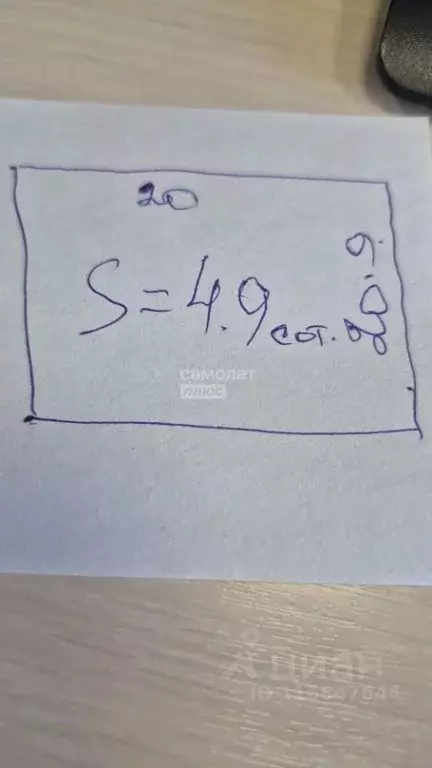 20
S=4.9 сот.
20.9.
самолет
плюс
циан